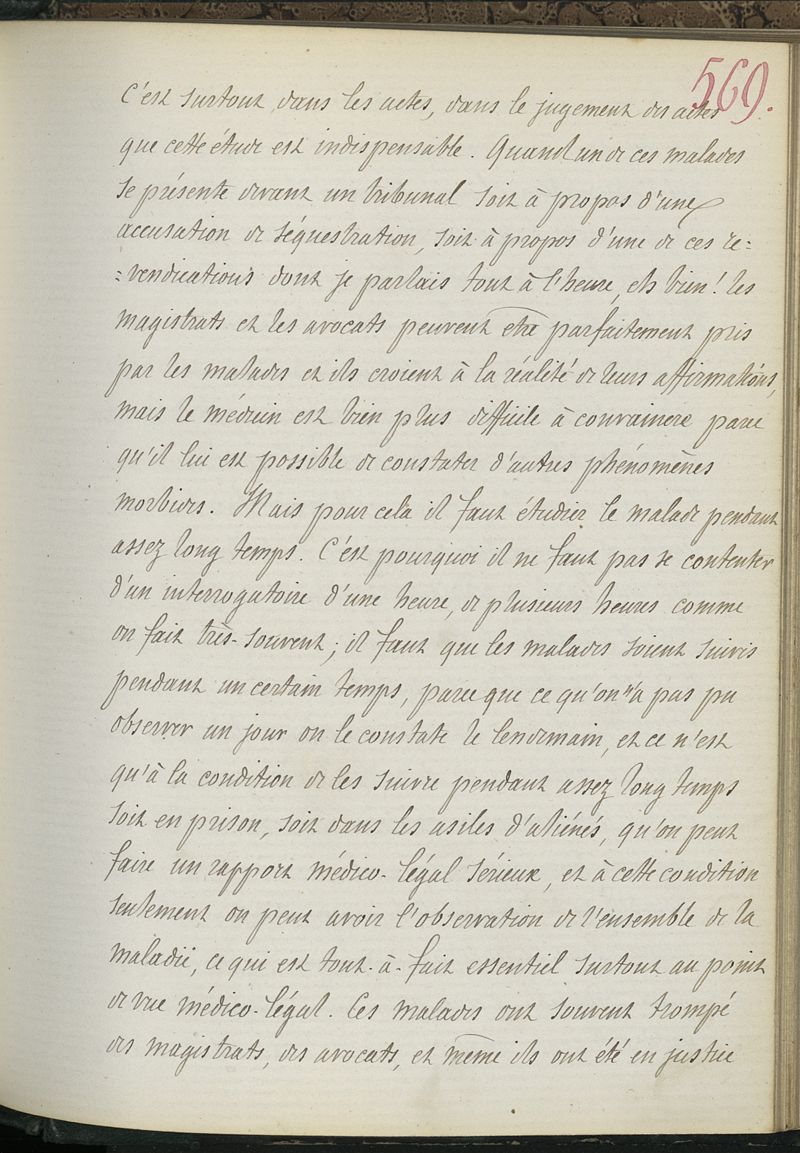 569.
C'est surtout dans les actes, dans le jugement des actes
que cette étude est indispensable. Quand un de ces malades
se présente devant un tribunal soit à propos d'une
accusation de séquestration, soit à propos d'une de ces re=
=vendications dont je parlais tout à l'heure, eh bien! les
magistrats et les avocats peuvent être parfaitement pris
par les malades et ils croient à la réalité de leurs affirmations,
mais le médecin est bien plus difficile à convaincre parce
qu'il lui est possible de constater d'autres phénomènes
morbides. Mais pour cela il faut étudier le malade pendant
assez long temps. C'est pourquoi il ne faut pas se contenter
d'un interrogatoire d'une heure, de plusieurs heures comme
on fait très-souvent; il faut que les malades soient suivis
pendant un certain temps, parce que ce qu'on n'a pas pu
observer un jour on le constate le lendemain, et ce n'est
qu'à la condition de les suivre pendant assez long temps
soit en prison, soit dans les asiles d'aliénés, qu'on peut
faire un rapport médico-légal sérieux, et à cette condition
seulement on peut avoir l'observation de l'ensemble de la
maladie, ce qui est tout-à-fait essentiel surtout au point
de vue médico-légal. Ces malades ont souvent trompé
des magistrats, des avocats, et même ils ont été en justice